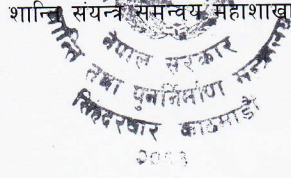 शान्ति संयन्त्र समन्वय महाशाखा
नेपाल सरकार
शान्ति तथा पुनर्निर्माण मन्त्रालय
सिंहदरबार काठमाडौं
२०६३